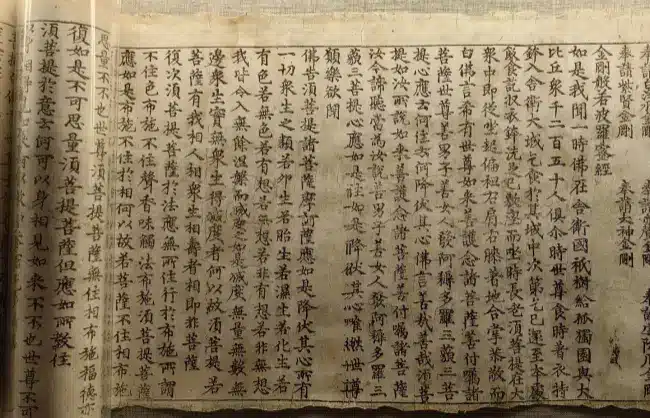 奉請紫賢金剛 奉請大神金剛
金剛般若波羅蜜經
如是我聞一時佛在舍衛國祇樹給孤獨園與大
比丘衆千二百五十人俱尒時世尊食時著衣持
鉢入舍衛大城乞食於其城中次第乞已還至本處
飯食訖収衣鉢洗足已敷座而坐時長老須菩提在大
衆中即從坐起偏袒右肩右膝著地合掌恭敬而
白佛言希有世尊如来善護念諸菩薩善付囑諸
菩薩世尊善男子善女人發阿耨多羅三藐三菩
提心應云何住云何降伏其心佛言善哉善哉須菩
提如汝所說如来善護念諸菩薩善付囑諸菩薩
汝今諦聽當為汝說善男子善女人發阿耨多羅三
藐三菩提心應如是住如是降伏其心唯然世尊
願樂欲聞
佛告須菩提諸菩薩摩訶薩應如是降伏其心所有
一切衆生之類若卵生若胎生若濕生若化生若
有色若無色若有想若無想若非有想若非無想
我皆令入無餘涅槃而滅度之如是滅度無量無數無
邊衆生實無衆生得滅度者何以故須菩提若
菩薩有我相人相衆生相壽者相即非菩薩
復次須菩提菩薩於法應無所住行於布施所謂
不住色布施不住聲香味觸法布施須菩提菩薩
應如是布施不住於相何以故若菩薩不住相布施
思量不不也世尊須菩提菩薩無住相布施福德亦
復如是不可思量須菩提菩薩但應如所教住
須菩提於意云何可以身相見如来不不也世尊不可